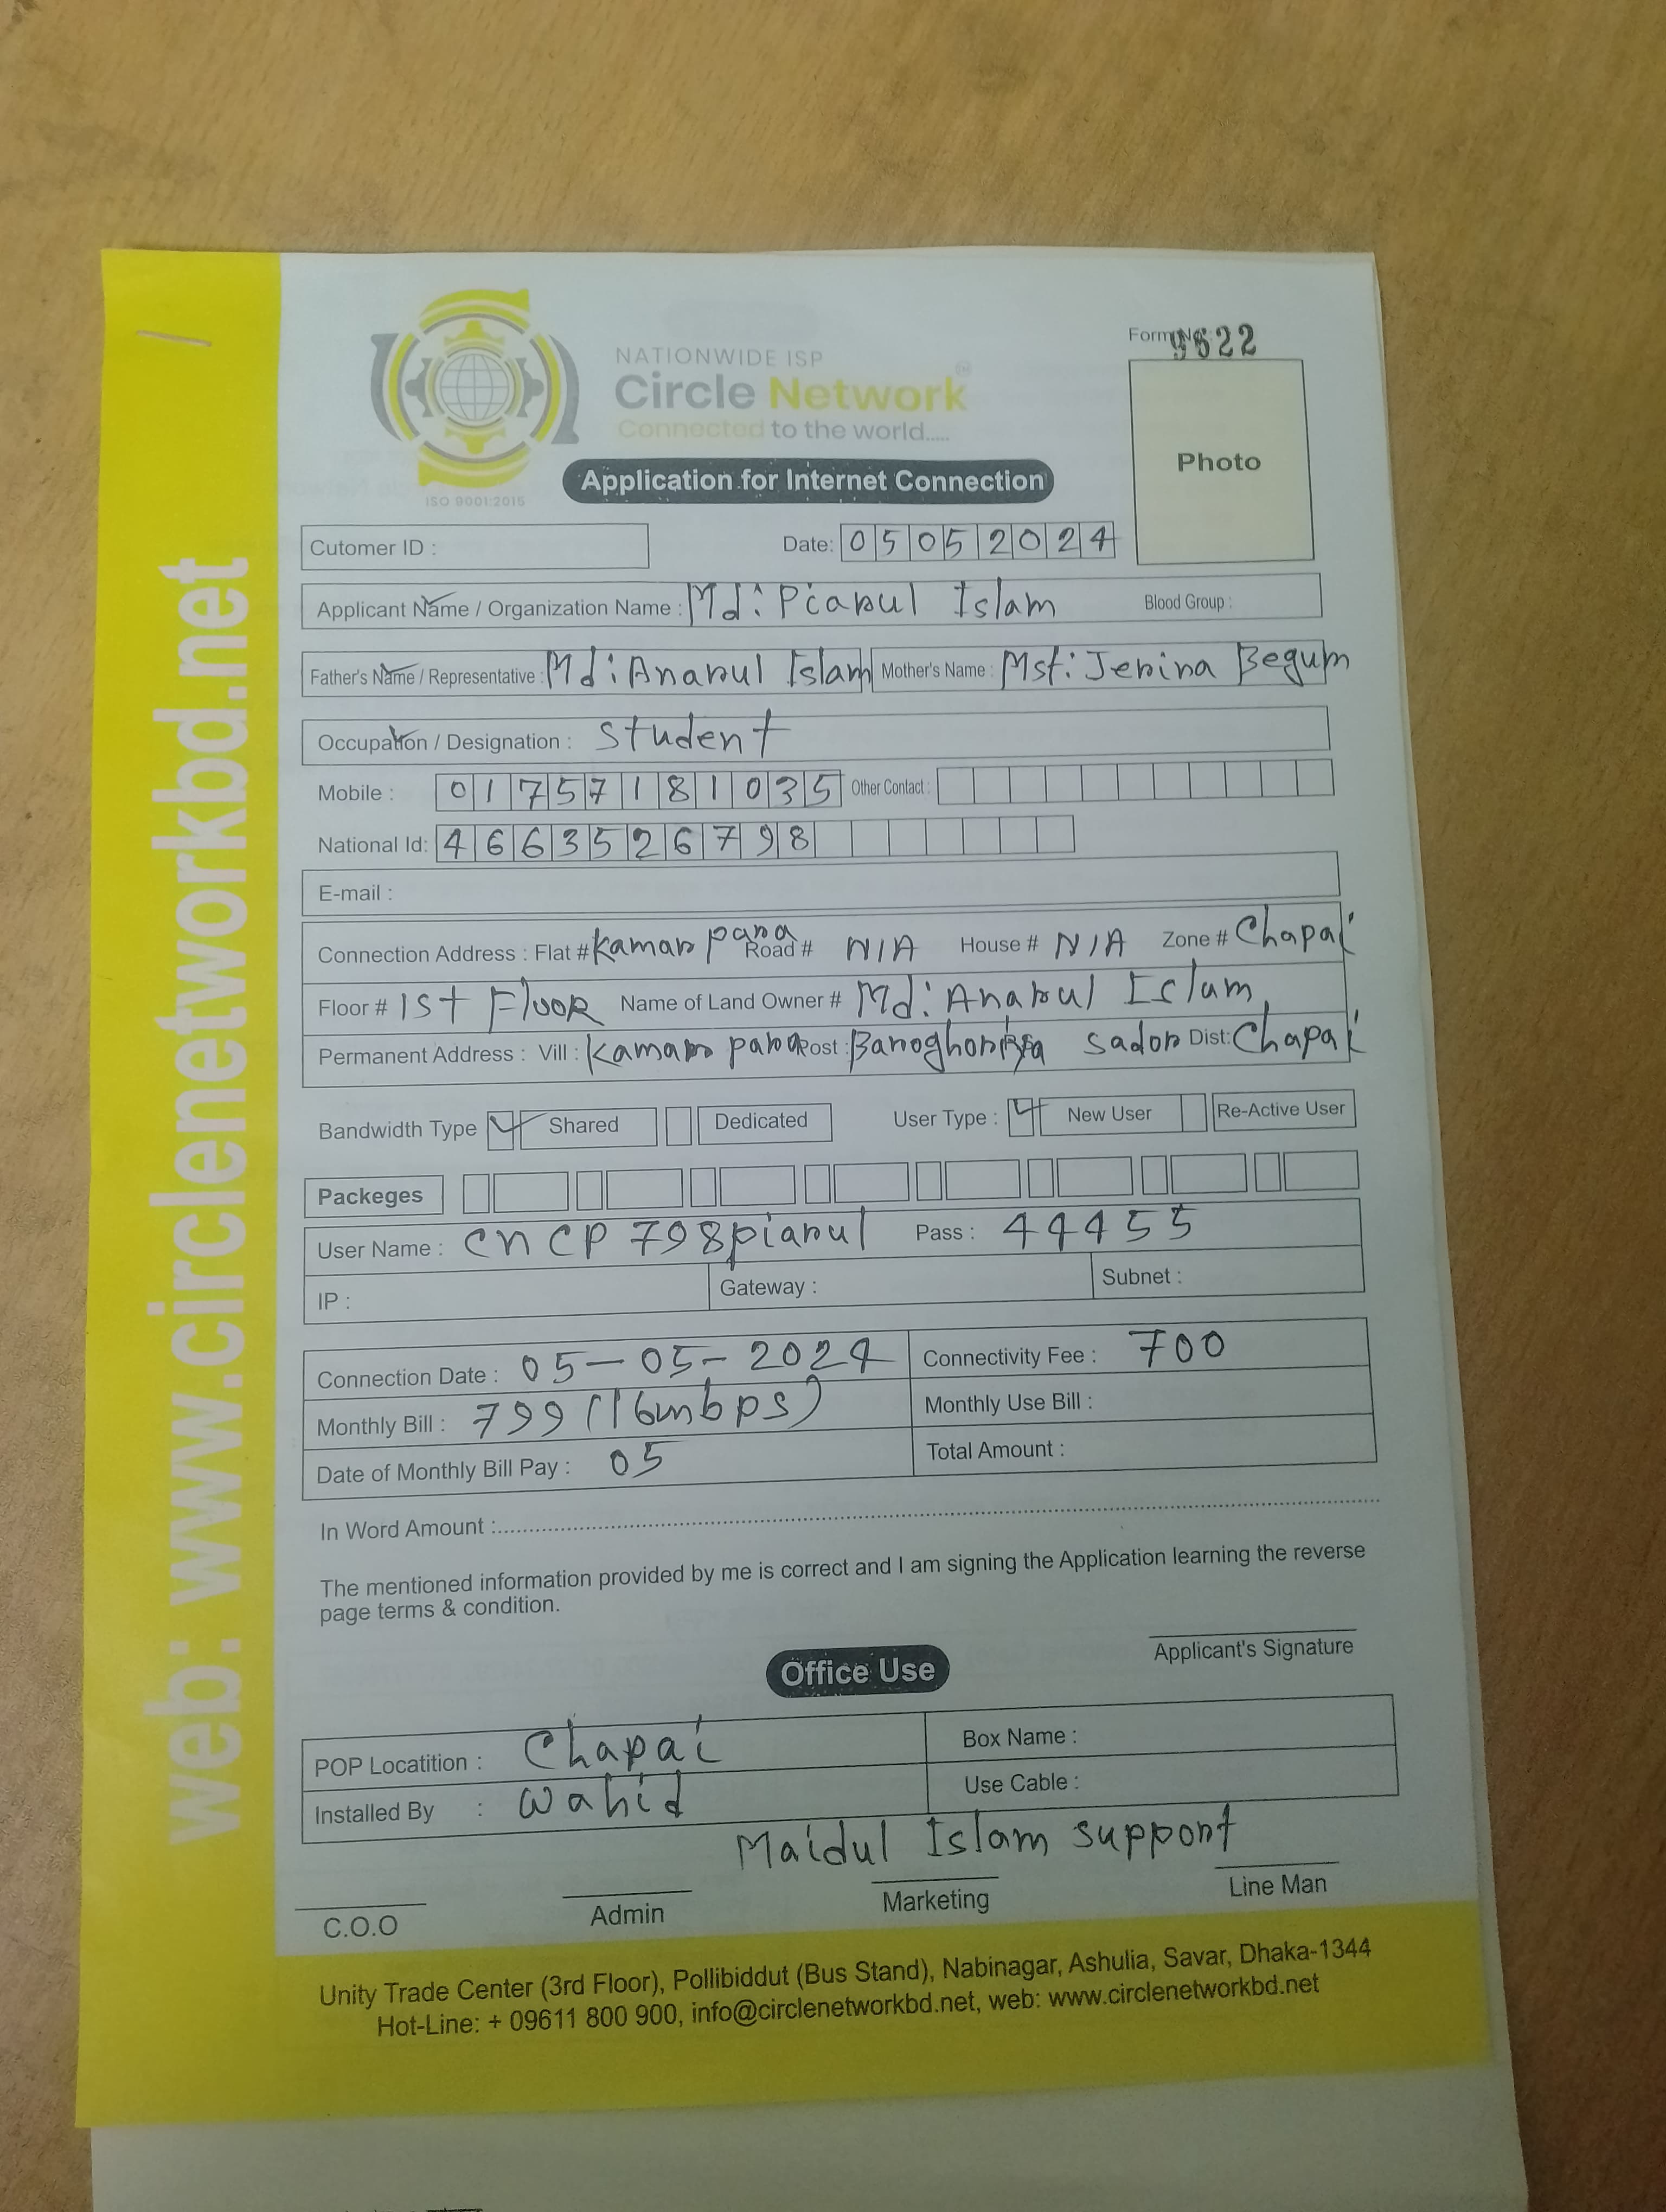 web: www.circlenetworkbd.net
NATIONWIDE ISP
Circle Network
Connected to the world.....
ISO 9001:2015
Form No: 9622
Photo
Application for Internet Connection
Cutomer ID :
Date: 05052024
Applicant Name / Organization Name : Md: Piarul Islam Blood Group :
Father's Name / Representative : Md: Anarul Islam Mother's Name : Mst: Jerina Begum
Occupation / Designation : student
Mobile : 01757181035 Other Contact :
National Id: 4663526798
E-mail :
Connection Address : Flat # Kamar para Road # N/A House # N/A Zone # Chapai
Floor # 1st Floor Name of Land Owner # Md: Anarul Islam
Permanent Address : Vill : Kamar para Post : Sador Dist: Chapai
Bandwidth Type Shared Dedicated User Type : New User Re-Active User
Packeges
User Name : cncp798piarul Pass : 44455
IP : Gateway : Subnet :
Connection Date : 05-05-2024 Connectivity Fee : 700
Monthly Bill : 799 (16mbps) Monthly Use Bill :
Date of Monthly Bill Pay : 05 Total Amount :
In Word Amount :
The mentioned information provided by me is correct and I am signing the Application learning the reverse
page terms & condition.
Applicant's Signature
Office Use
POP Locatition : Chapai Box Name :
Installed By : Wahid Use Cable :
Maidul Islam support
C.O.O Admin Marketing Line Man
Unity Trade Center (3rd Floor), Pollibiddut (Bus Stand), Nabinagar, Ashulia, Savar, Dhaka-1344
Hot-Line: + 09611 800 900, info@circlenetworkbd.net, web: www.circlenetworkbd.net